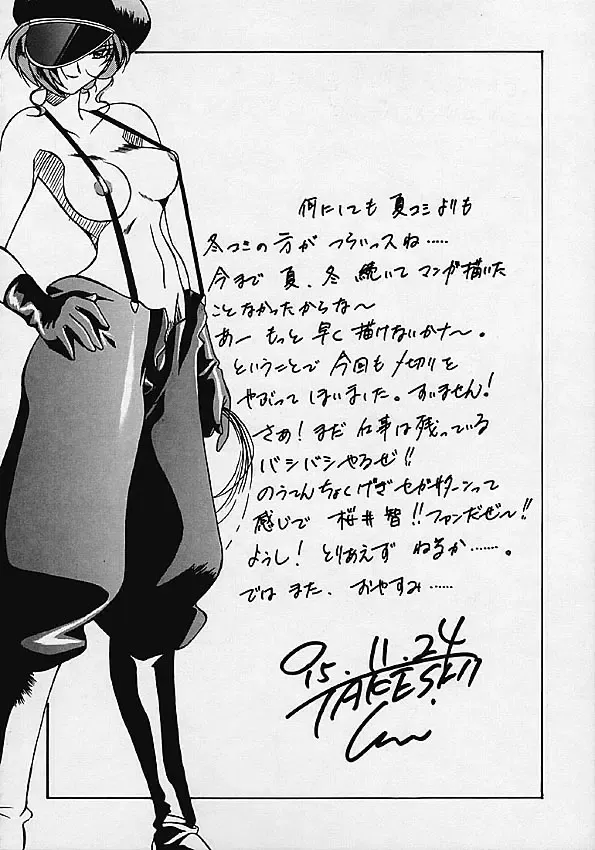 何にしても 夏コミよりも
冬コミの方が つらいっスね……
今まで 夏、冬 続いて マンガ描いた
ことなかったからな〜
あー もっと 早く 描けないかナ〜。
ということで 今回も 〆切りを
やぶって しまいました。すいません!
さあ! まだ 仕事は残っている
バシバシやるぜ!!
のうてんちょくげき セガサターンって
感じで 桜井智!! ファンだぜ〜!!
ようし! とりあえず ねるか……。
では また、おやすみ……
'95.11.24
TAKESHI